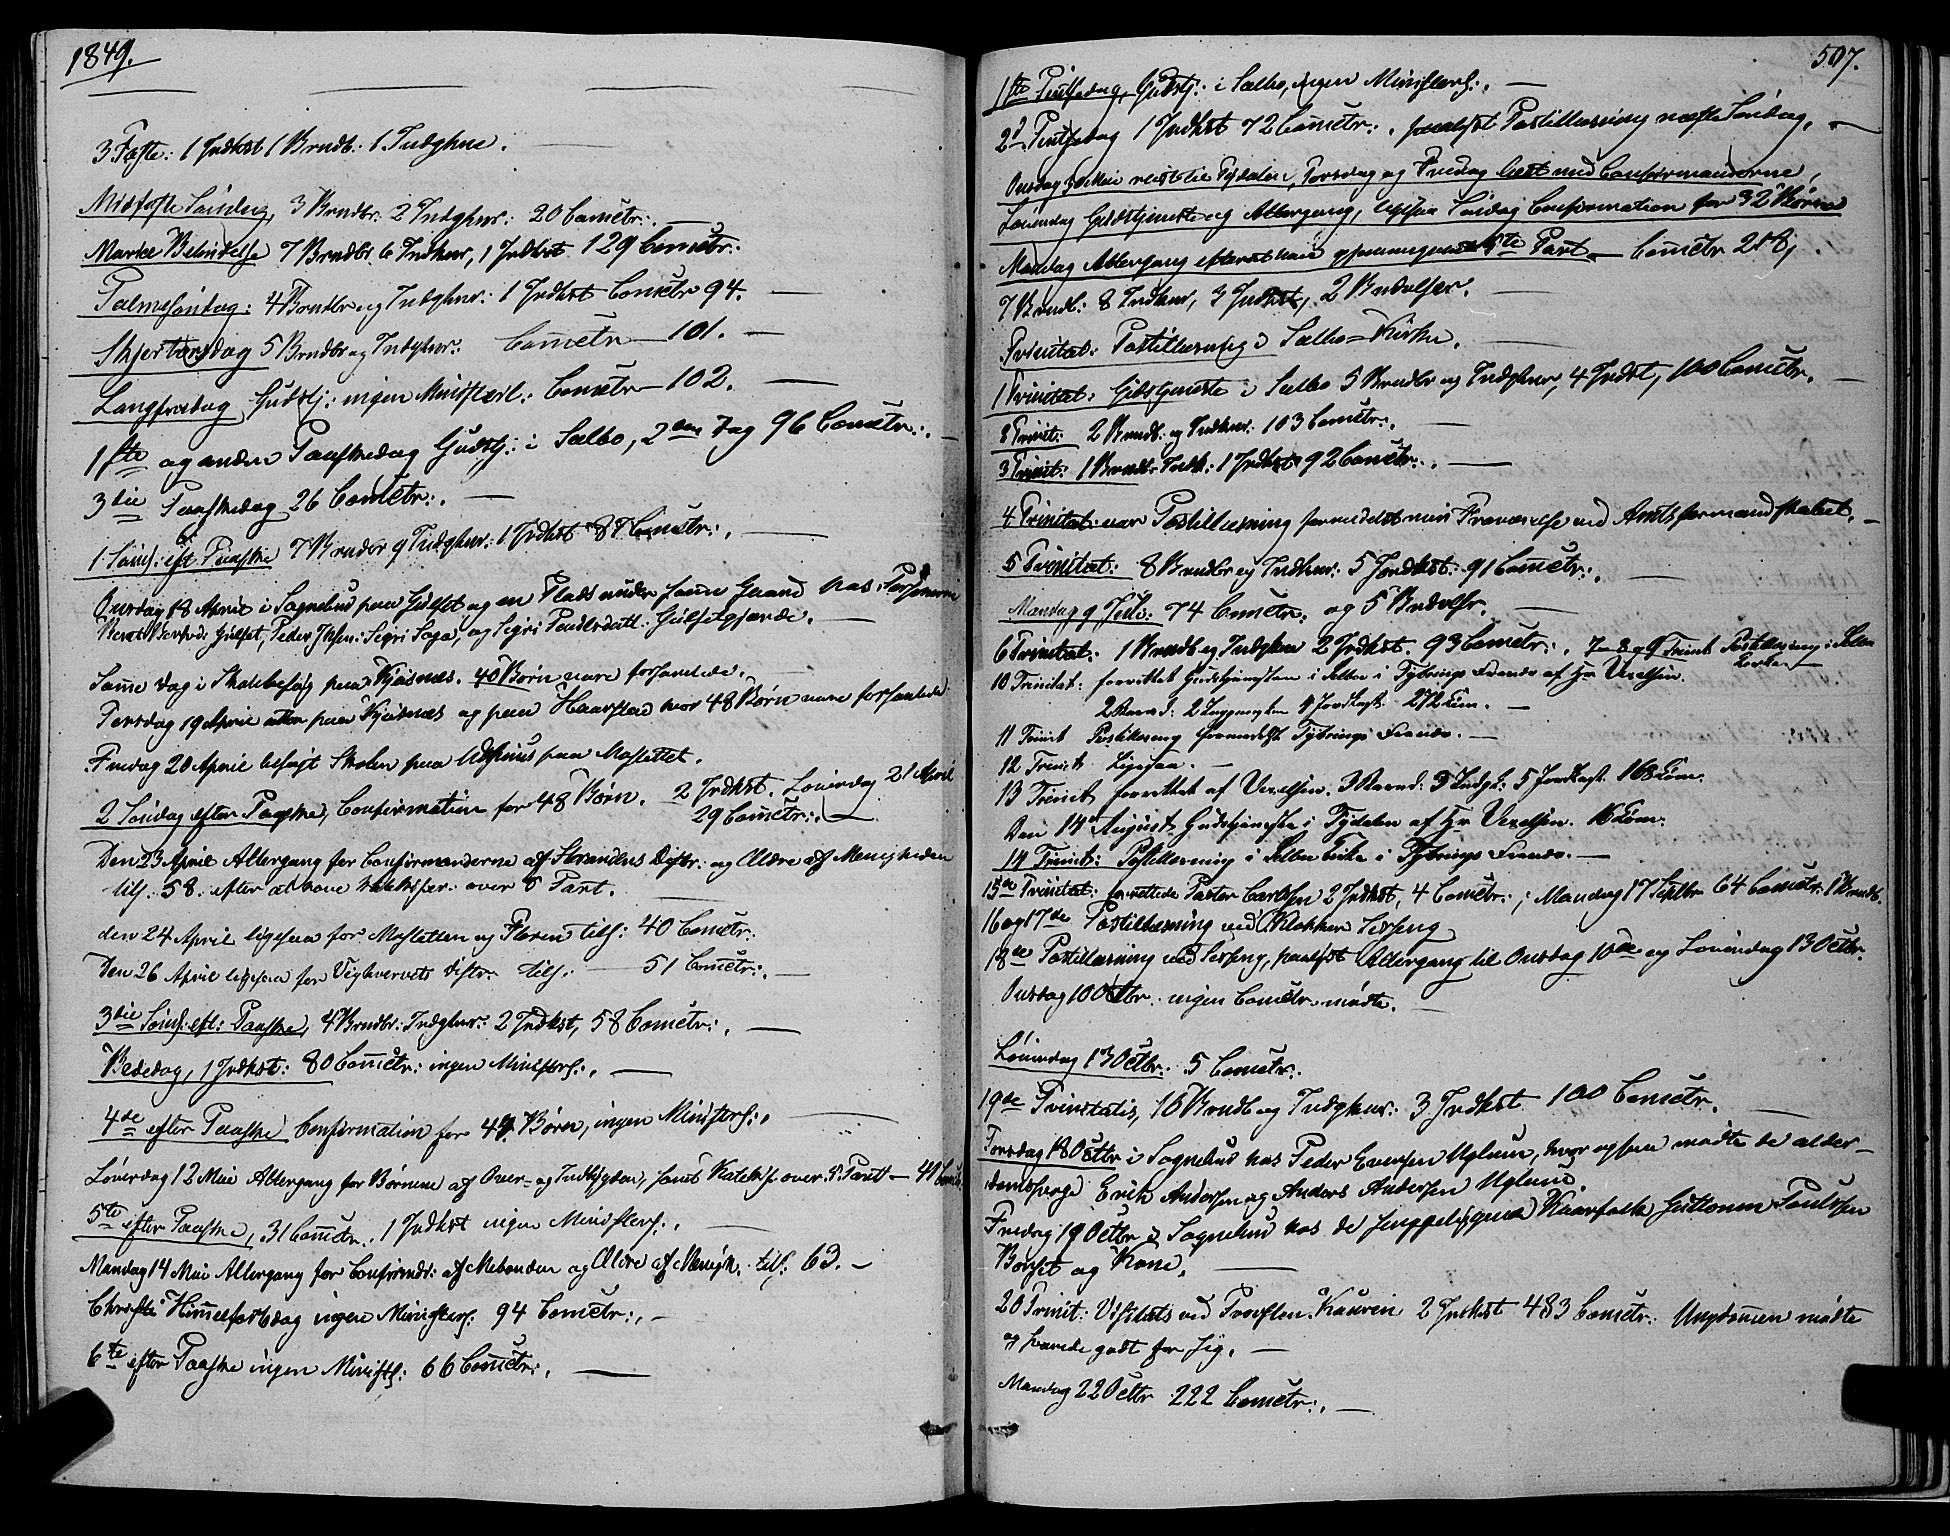 1849.
3 Faste: 1 Jndkst 1 Brudb: 1 Indghne.
Midfaste Søndag, 3 Brudbr: 2 Indghnr: 20 Comctr:.
Mariæ Bebudelse 7 Brudbr. 6 Indhnr, 1 Jndkst 129 Comctr:
Palmesøndag: 4 Brudbr og Indghnr: 1 Jndkst Comctr 94.
Skjertorsdag 5 Brudbr og Indghnr: Comctr 101.
Langfredag Gudstj: ingen Ministeril: Comctr 102.
1ste og anden Paaskedag Gudstj: i Selbo, 2den Dag 96 Comctr:.
3die Paaskedag 26 Comctr:.
1 Sønd: eft Paaske 7 Brudbr 9 Indghnr: 1 Jndkst 87 Comctr:.
Onsdag 18 April i Sognebud paa Gulset og en Plads under samme Gaard hos
Gulset, Peder Sigri og Sigri Gulsetgjærde.
Samme dag i Skolebesøg paa Kjøsnæs. 40 Børn vare forsamlede.
Torsdag 19 April atter paa Kjøsnæs og paa Haarstad hvor 48 Børn vare forsamlede
Fredag 20 April besøgt Skolen paa Uthuus paa Mosletten.
2 Søndag efter Paaske, Confirmation for 48 Børn. 2 Jndkst. Løverdag 21 April
29 Comctr:.
Den 23 April Altergang for Confirmanderne af Strandens Distr: og Ældre af Menigheden
tils: 58. efter at have over 5 Part.
den 24 April ligesaa for Mosletten og Floren tils: 40 Comctr:
Den 26 April ligesaa for Vighvervets Distr: tils: 51 Comctr:.
3die Sønd: eft: Paaske, 4 Brudbr: Indghnr: 2 Jndkst, 58 Comctr:.
Bededag, 1 Jndkst: 80 Comctr: ingen Ministers:.
4de efter Paaske Confirmation for 47 Børn, ingen Ministers:.
Løverdag 12 Mai Altergang for Børnene af Over- og Indbygden, samt Katekis: over 5 Part 41 Comct.
5te efter Paaske, 31 Comctr. 1 Jndkst ingen Ministers:.
Mandag 14 Mai Altergang for Confirmds: af Mebonden og Ældre af Menigh. tils: 63.
Christi Himmelfartsdag ingen Ministers: 94 Comctr:.
6te efter Paaske ingen Ministrs: 66 Comctr:.
507.
1ste Pintsedag, Gudstj: i Selbo, ingen Ministers:.
2d Pintsedag 1 Jndkst 72 Comctr:. Postillæsning næste Søndag.
Onsdag 30 Mai reist til Tydalen, Torsdag og Fredag læst med Confirmanderne,
Løverdag Gudstjeneste og Altergang, ligesaa Søndag Confirmation for 32 Børn
Mandag Altergang efter at have gjennemgaaet 5te Part Comctr
7 Brudb: 8 Indhnr, 3 Jndkst, 2 Brudvlser.
Trinitat: Postillæsning i Selbo-Kirke.
1 Trinitat: Gudstjeneste i Selbo 5 Brudbr og Indghnr, 4 Jndkst, 100 Comctr.
2 Trinit: 2 Brudb: og Indhnr: 103 Comctr:.
3 Trinit: 1 Brudb: Indh: 1 Jndkst 92 Comctr:.
4 Trinitat: var Postillæsning formedelst min Fraværelse ved Amtsformandskabet.
5 Trinitat: 8 Brudbr og Indhnr: 5 Jordkst: 91 Comctr:.
Mandag 9 Juli: 74 Comctr. og 5 Brudvlsr.
6 Trinitat: 1 Brudb og Indghne 2 Jndkst. 93 Comctr:. 7 8 og 9 Trinit Postillæsning i Selbo
Kirke.
10 Trinitat: forrettet Gudstjenesten i Selbo i Tybrings Fravær af Hr Vexelsen.
2 Brud: 2 4 Jordkast 272 Com.
11 Trinit Postillæsning formedelst Tybrings Fravær.
12 Trinit Ligesaa.
13 Trinit forrettet af Vexelsen. 3 Brud: 3 Indgk: 5 Jordkast. 168 Com.
Den 14 August Gudstjeneste i Tydalen af Hr Vexelsen. 16 Com.
14 Trinit: Postillæsning i Selbo Kirke i Tybrings Fravær.
15de Trinitat: forrettede Pastor Carlsen 2 Jndkst, 4 Comctr:; Mandag 17 Septbr 64 Comctr: 1 Brudb.
16 og 17de Postillæsning ved Klokker Sesseng
18de Postillæsning ved Sesseng, Altergang til Onsdag 10de og Løverdag 13 Octbr.
Onsdag 10 Octbr. ingen Comctr. mødte.
Løverdag 13 Octbr. 5 Comctr:
19de Trinitatis, 16 Brudb og Indghnr: 3 Jndkst 100 Comctr.
Torsdag 18 Octbr i Sognebud hos Peder Eversen Uglum, hvor ogsaa mødte de alder-
domssvage Erik Andersen og Anders Andersen Uglum.
Fredag 19 Octbr i Sognebud hos de sengeliggende Kaarfolk Guttorm Poulsen
Borset og Kone.
20 Trinit: Visitats ved Provsten Kaurin 2 Jndkst 483 Comctr: Ungdommen mødte
og svarede godt for sig.
Mandag 22 Octbr 222 Comctr:.